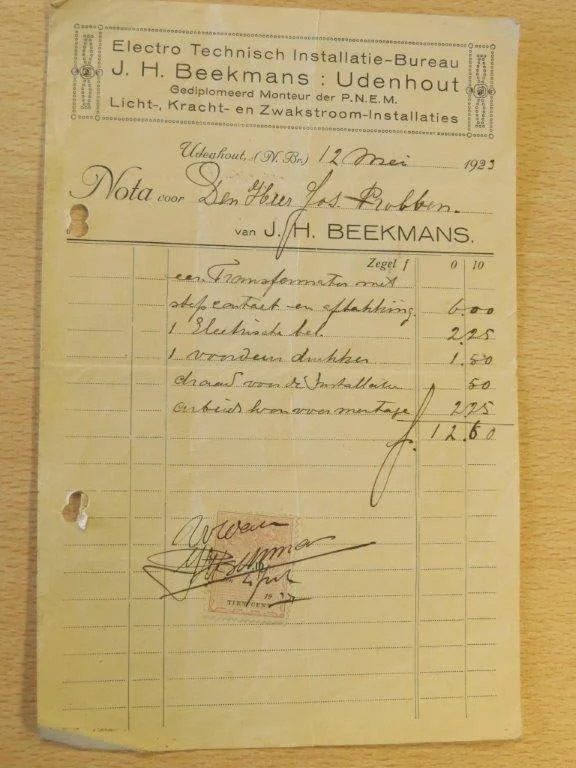 Electro Technisch Installatie-Bureau
J. H. Beekmans : Udenhout
Gediplomeerd Monteur der P.N.E.M.
Licht-, Kracht- en Zwakstroom-Installaties
Udenhout, (N. Br.) 12 Mei 1923
Nota voor Den Heer Jos. Robben.
van J. H. BEEKMANS.
Zegel f 0 10
een Transformator met
stopcontact en aftakking. 6.00
1 Electrische bel 2.25
1 voordeur drukker 1.50
draad voor de Installatie 50
arbeids loon voor montage 2.25
f. 12.60
Voldaan
JHBeekmans
19
TIEN CENT